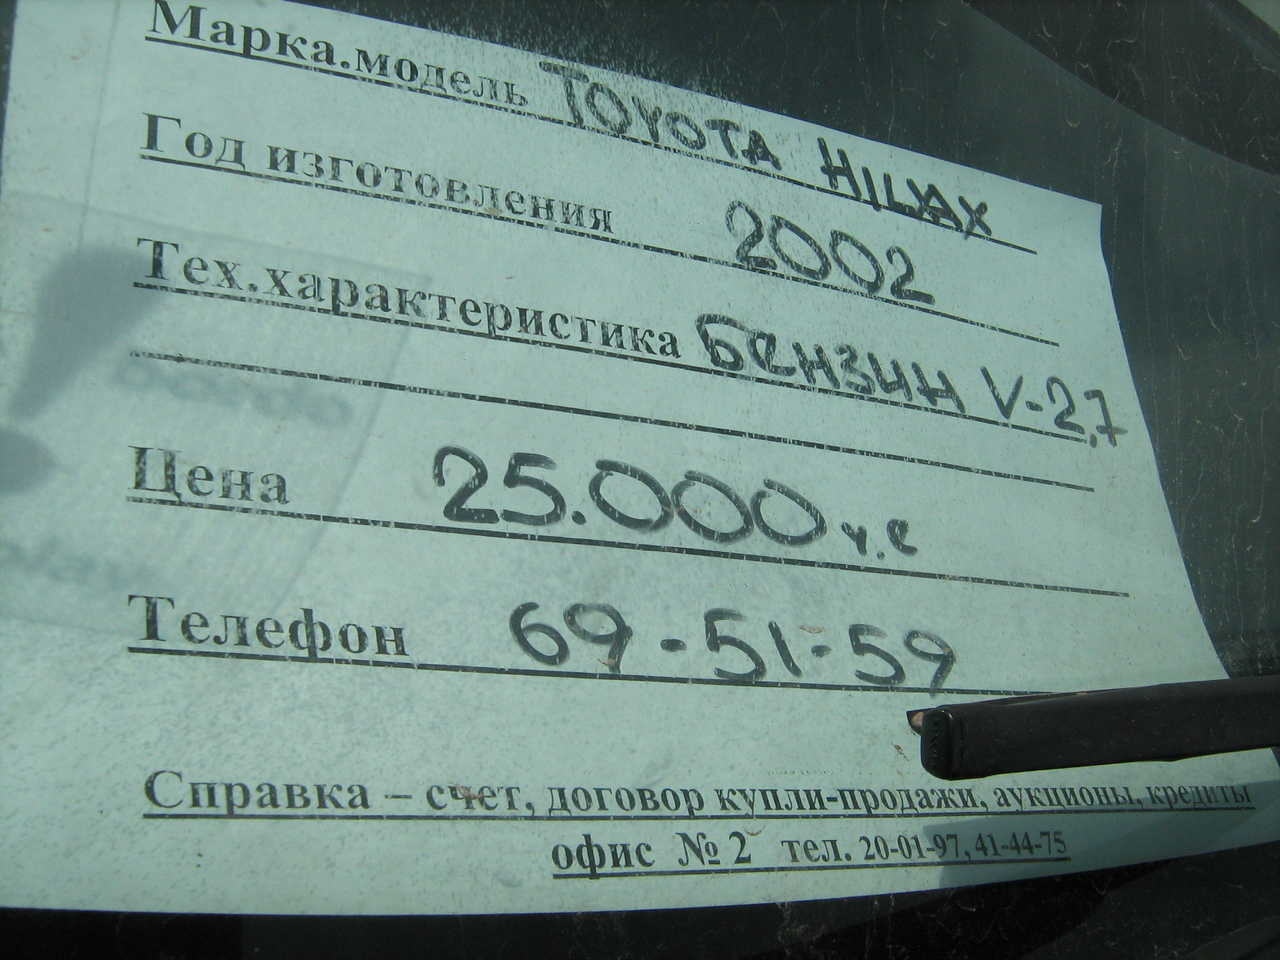 Марка.модель TOYOTA HILAX
Год изготовления 2002
Тех.характеристика БЕНЗИН V-2,7
Цена 25.000 у.е
Телефон 69-51-59
Справка – счет, договор купли-продажи, аукционы, кредиты
офис № 2 тел. 20-01-97, 41-44-75